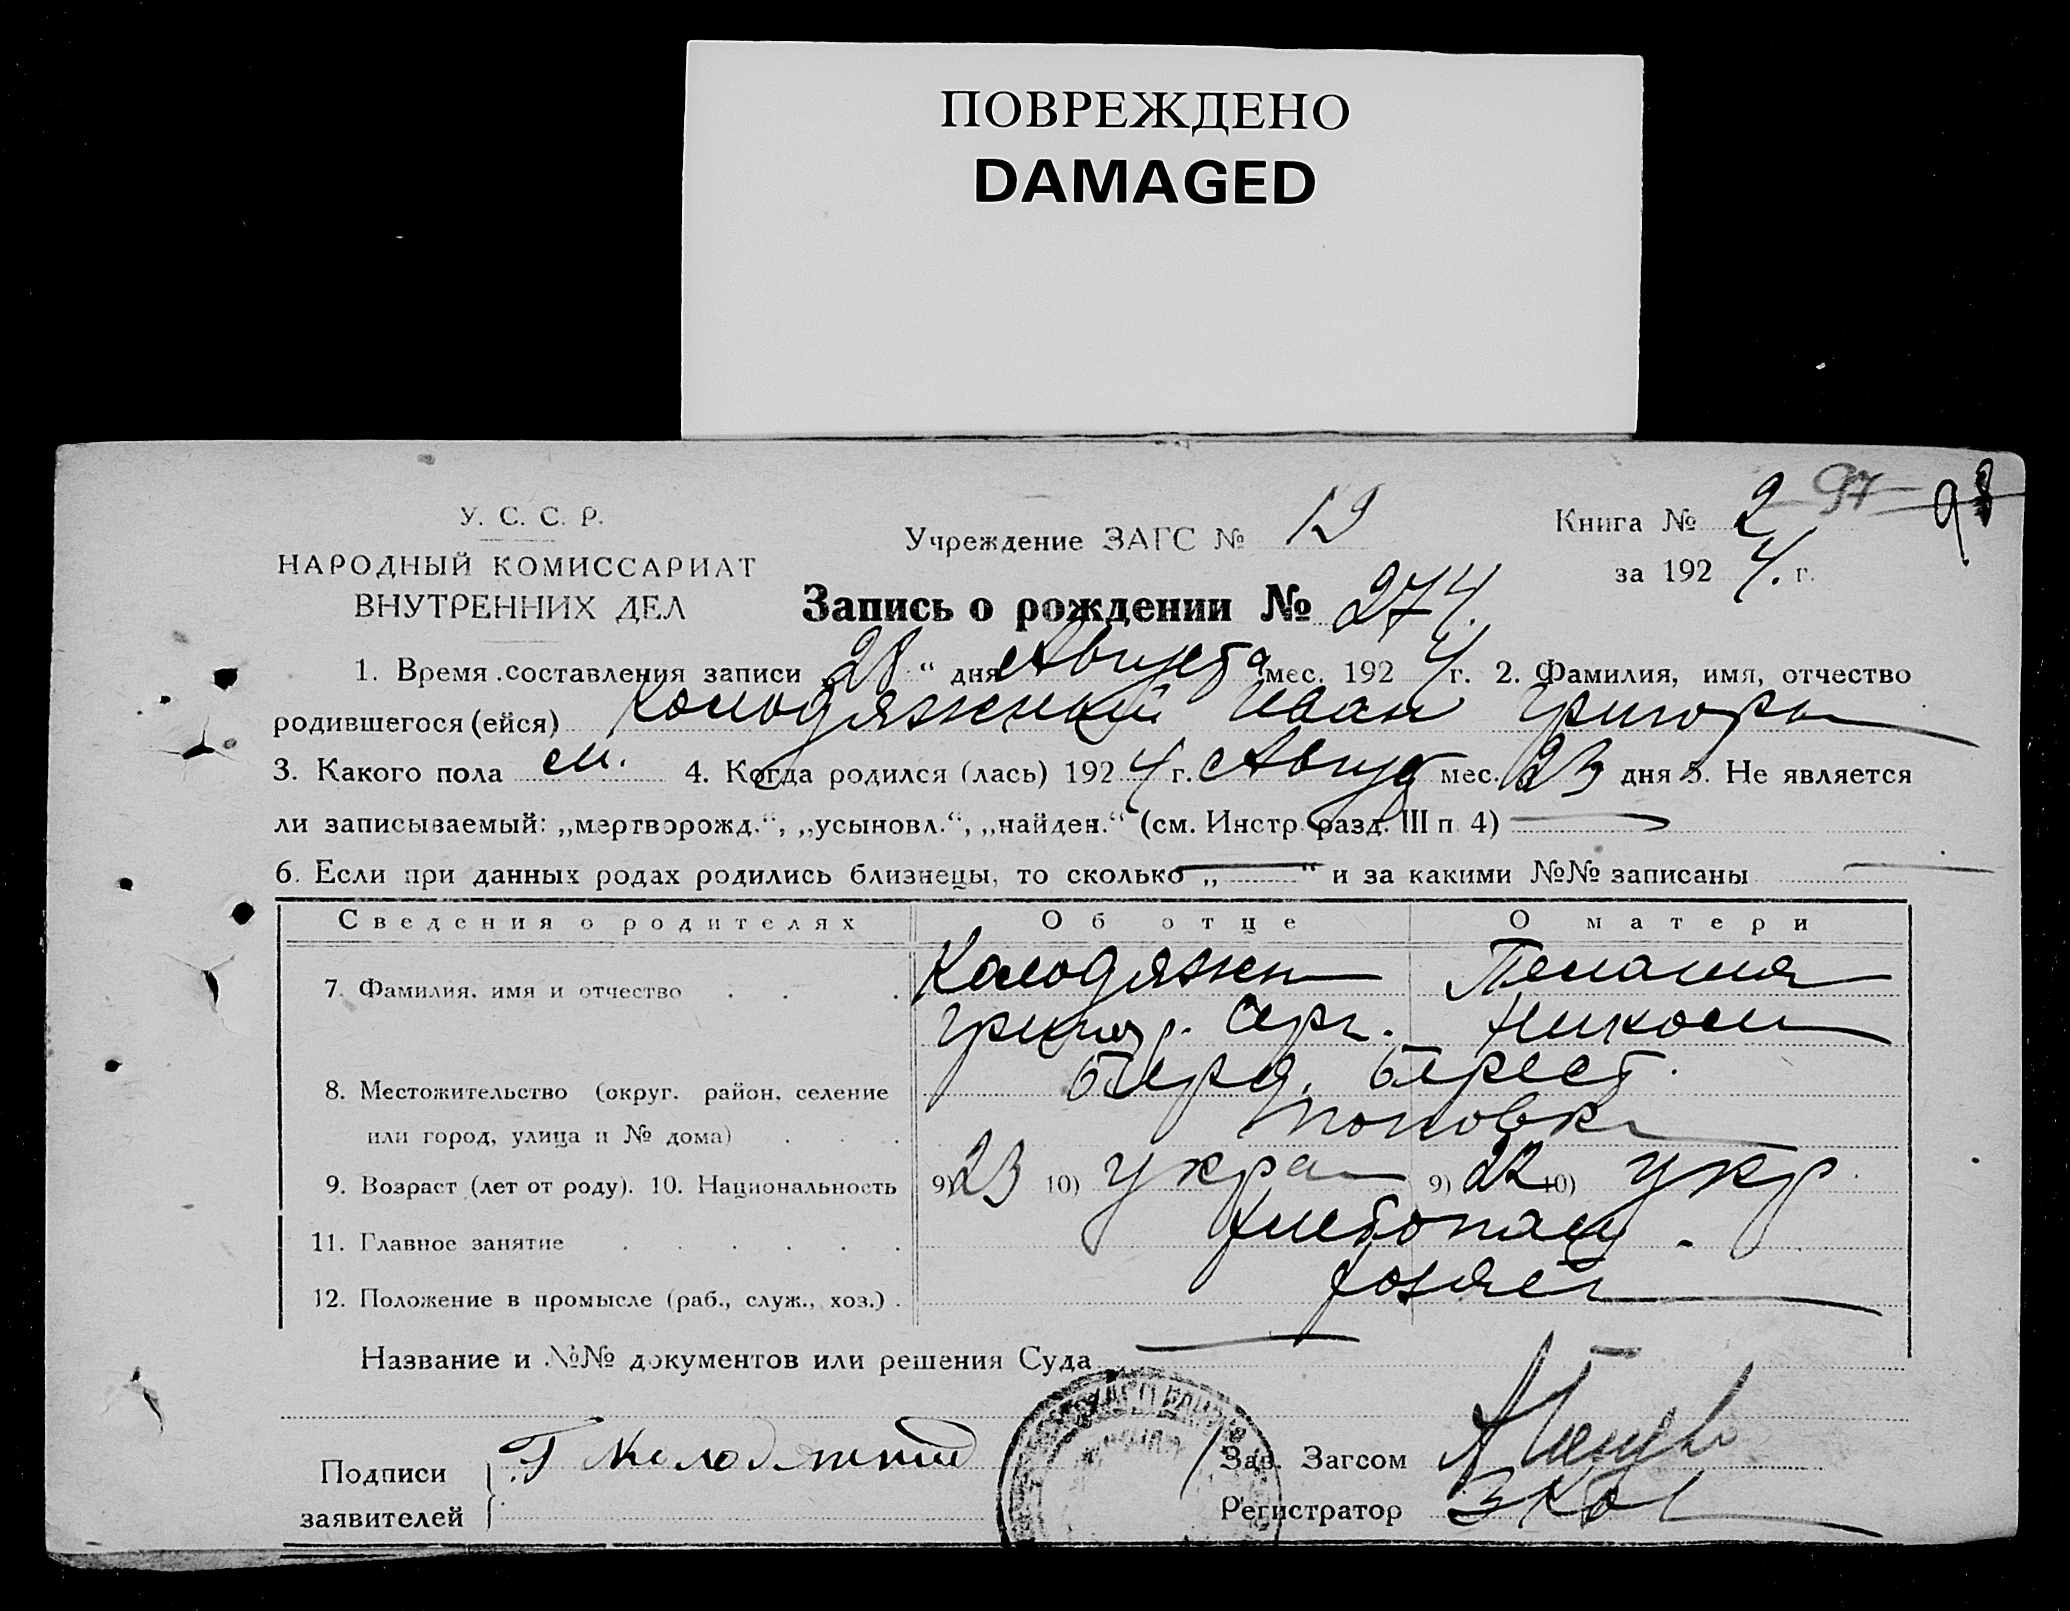 ПОВРЕЖДЕНО
DAMAGED
97 98
У. С. С. Р.
НАРОДНЫЙ КОМИССАРИАТ
ВНУТРЕННИХ ДЕЛ
Учреждение ЗАГС № 19
Книга № 2
за 1924. г.
Запись о рождении № 274.
1. Время составления записи „28“ дня Августа мес. 1924 г. 2. Фамилия, имя, отчество
родившегося (ейся) Колодяжный Иван Григорь
3. Какого пола м. 4. Когда родился (лась) 1924 г. Август мес. 23 дня 5. Не является
ли записываемый: „мертворожд.“, „усыновл.“, „найден.“ (см. Инстр. разд. III п. 4)
6. Если при данных родах родились близнецы, то сколько „ “ и за какими №№ записаны
Сведения о родителях Об отце О матери
7. Фамилия, имя и отчество Колодяжн Пелагия
Григор. Серг. Никол
8. Местожительство (округ, район, селение Берд. Берест.
или город, улица и № дома) Поповка
9. Возраст (лет от роду). 10. Национальность 9) 23 10) Укра 9) 22 10) Укр
11. Главное занятие хлебопаш.
12. Положение в промысле (раб., служ., хоз.) хозяев
Название и №№ документов или решения Суда
Подписи Г Колодяжний Зав. Загсом
заявителей Регистратор